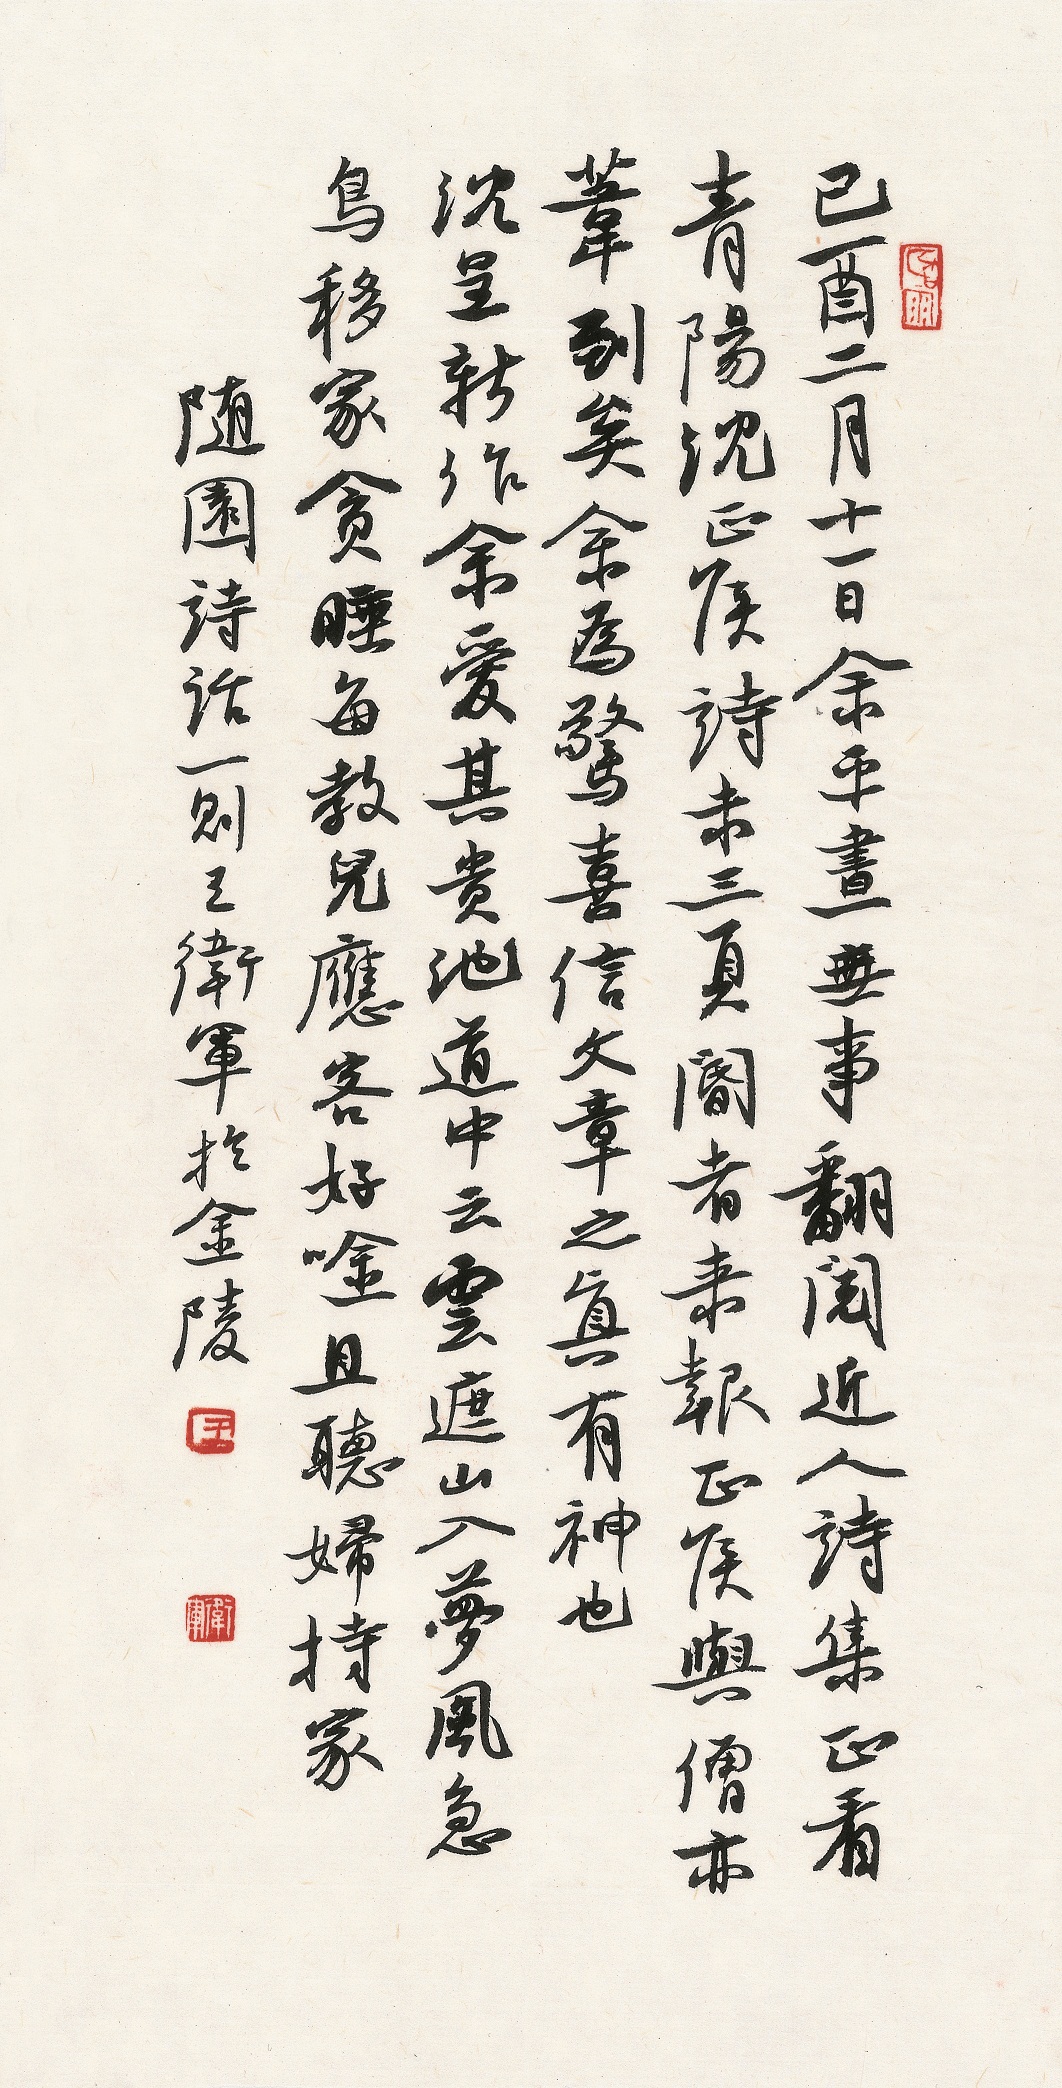 己酉二月十一日余平晝無事翻閱近人詩集正看
青陽沈正侯詩未三頁閽者来報正侯與僧亦
葦到矣余為驚喜信文章之真有神也
沈呈新作余愛其貴池道中云雲遮山入夢風急
鳥移家貪睡每教兒應客好唫且聽婦持家
随園詩話一則王衛軍於金陵
王
衛軍